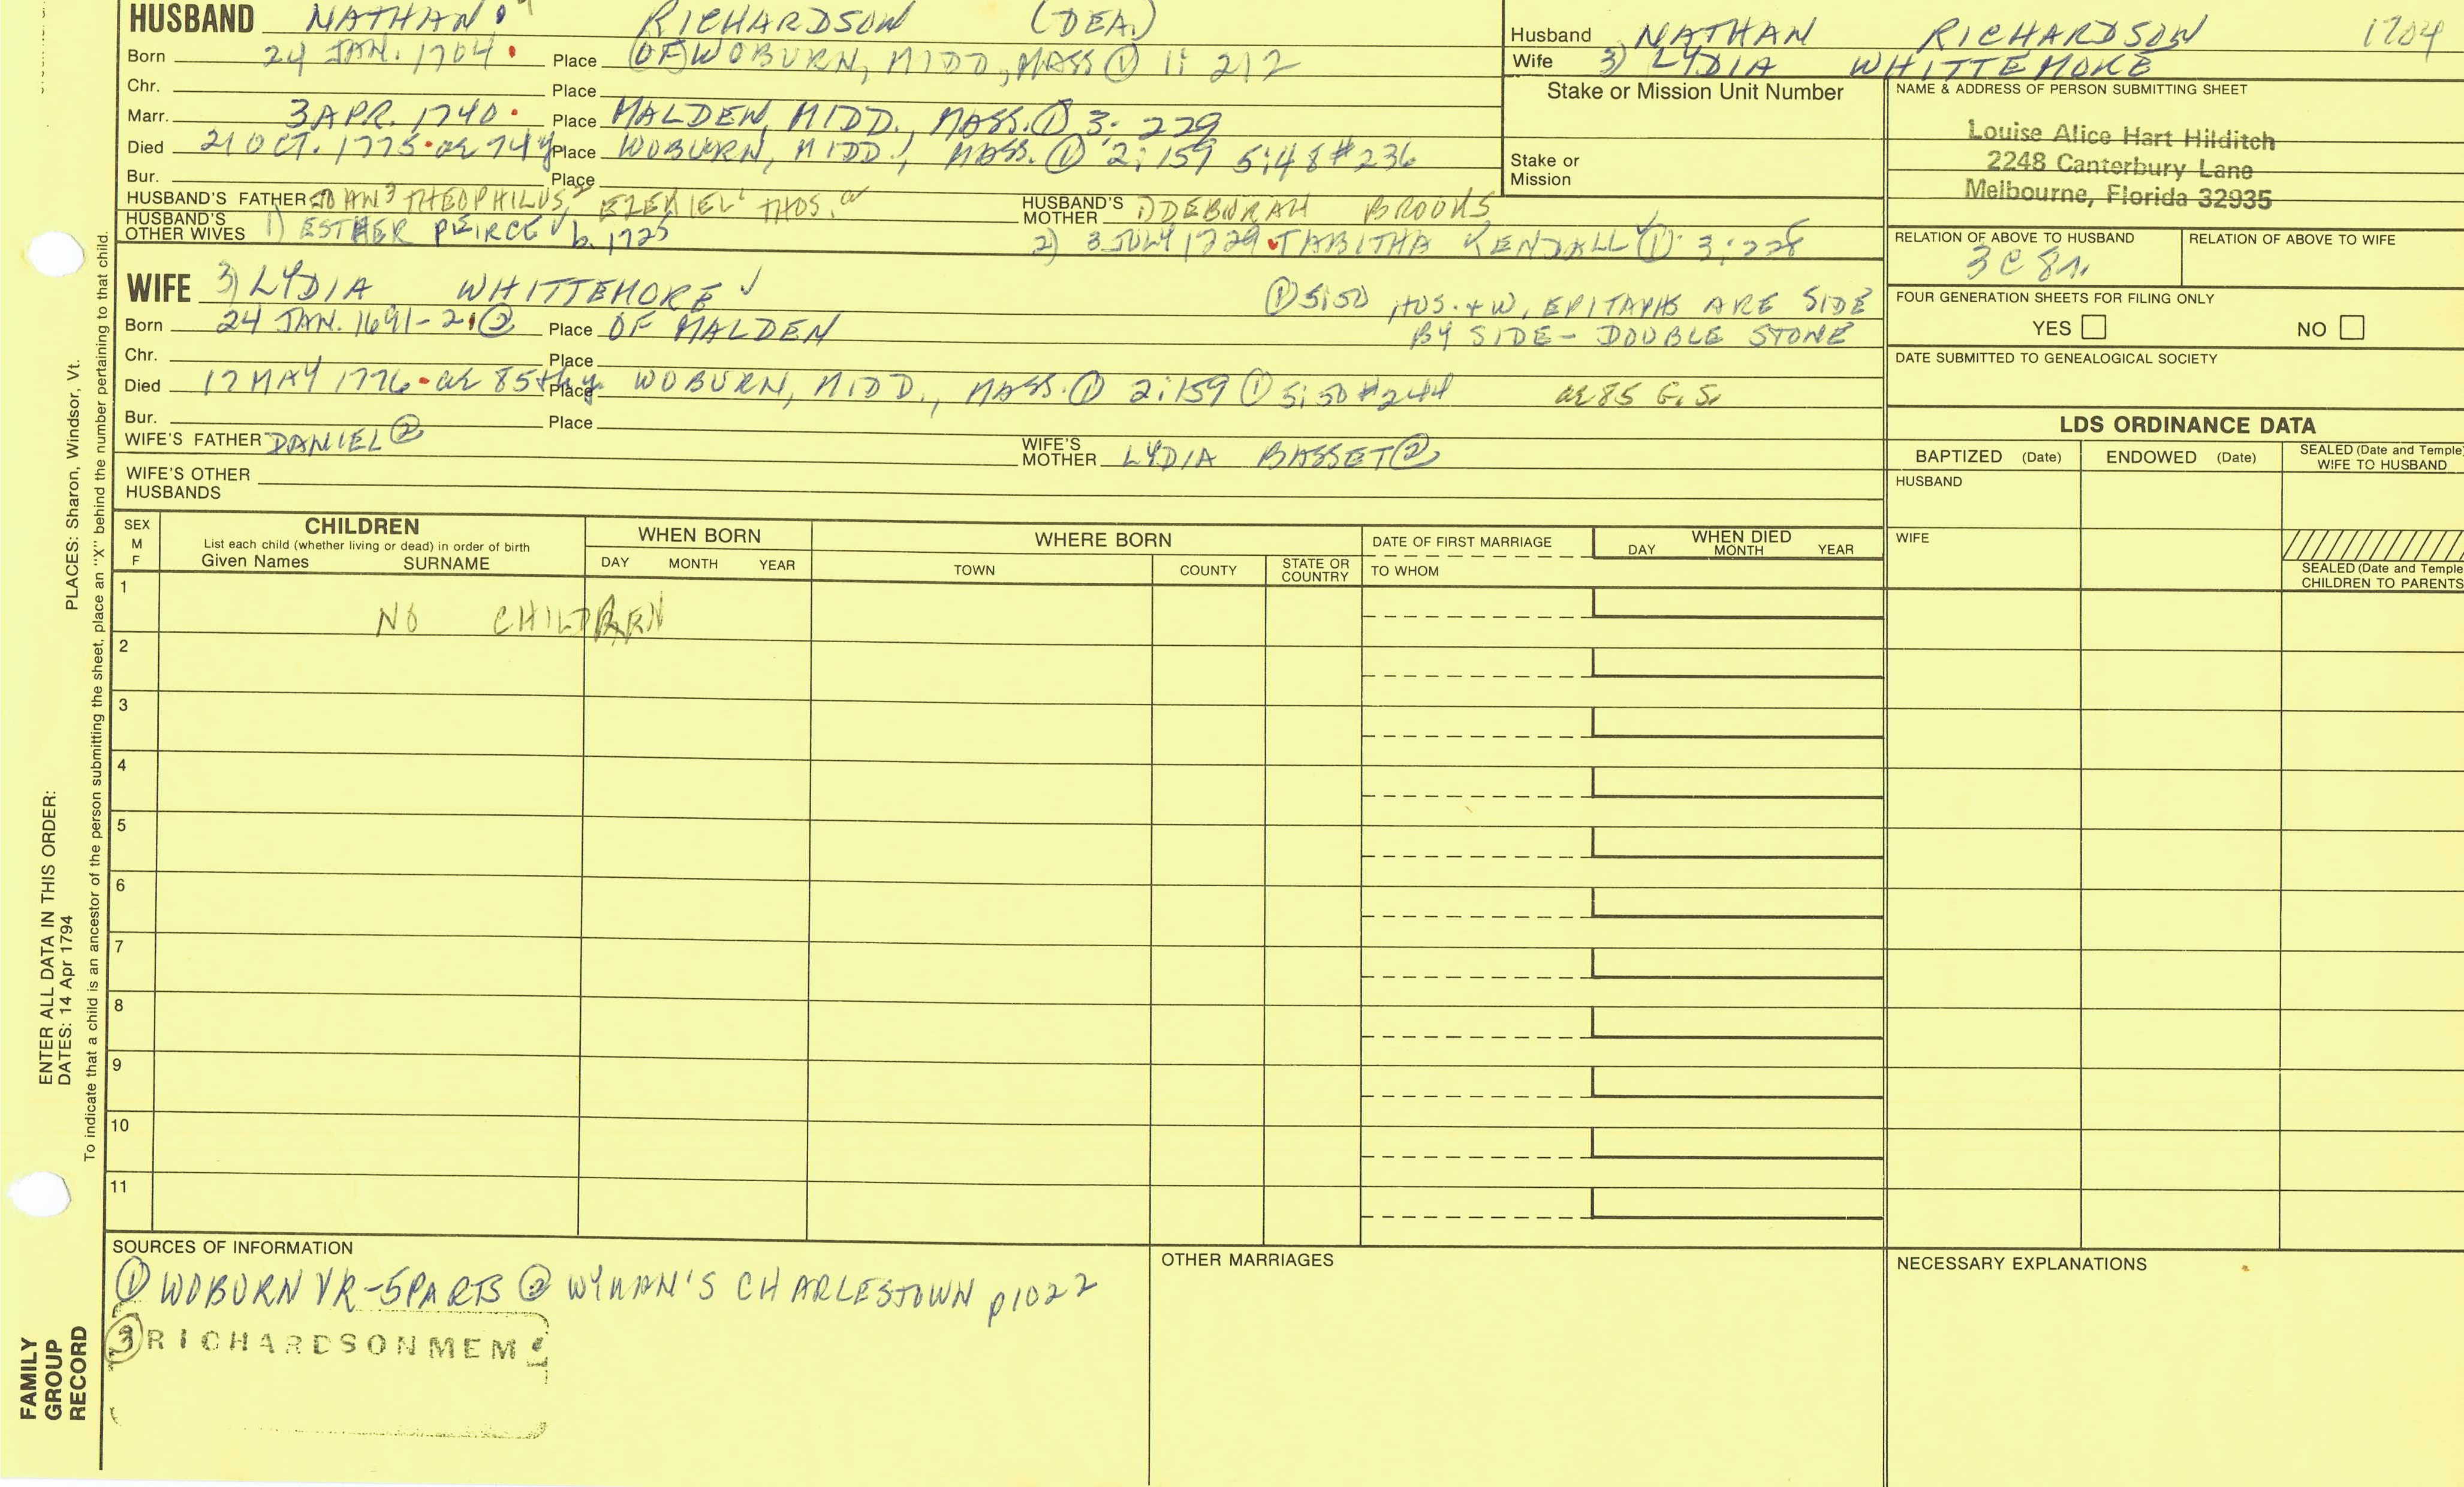 HUSBAND NATHAN RICHARDSON (DEA.)
Born 24 JAN. 1704 Place (OF) WOBURN, MIDD, MASS ① 1: 212
Chr. Place
Marr. 3 APR. 1740 Place MALDEN, MIDD., MASS. ① 3: 229
Died 21 OCT. 1775 ae 74y Place WOBURN, MIDD., MASS. ① 2:159 5:48 #236
Bur. Place
HUSBAND'S FATHER THEOPHILUS2 EZEKIEL1 THOS.a
HUSBAND'S MOTHER 1) DEBORAH BROOKS
HUSBAND'S OTHER WIVES 1) ESTHER PEIRCE √ b. 1725
2) 3 JULY 1729 TABITHA KENDALL √ ① 3:228
WIFE 3) LYDIA WHITTEMORE √
① 5:50 HUS. + W, EPITAPHS ARE SIDE
BY SIDE - DOUBLE STONE
Born 24 JAN. 1691-2 ② Place OF MALDEN
Chr. Place
Died 17 MAY 1776 ae 85th y. Place WOBURN, MIDD., MASS. ① 2:159 ① 5:50 #244 ae 85 G.S.
Bur. Place
WIFE'S FATHER DANIEL ②
WIFE'S MOTHER LYDIA BASSET ②
WIFE'S OTHER
HUSBANDS
Husband NATHAN RICHARDSON 1704
Wife 3) LYDIA WHITTEMORE
Stake or Mission Unit Number
Stake or
Mission
NAME & ADDRESS OF PERSON SUBMITTING SHEET
Louise Alice Hart Hilditch
2248 Canterbury Lane
Melbourne, Florida 32935
RELATION OF ABOVE TO HUSBAND RELATION OF ABOVE TO WIFE
3C 8r.
FOUR GENERATION SHEETS FOR FILING ONLY
YES NO
DATE SUBMITTED TO GENEALOGICAL SOCIETY
LDS ORDINANCE DATA
BAPTIZED (Date) ENDOWED (Date) SEALED (Date and Temple)
WIFE TO HUSBAND
HUSBAND
WIFE
SEALED (Date and Temple
CHILDREN TO PARENTS
SEX
M
F
CHILDREN
List each child (whether living or dead) in order of birth
Given Names SURNAME
WHEN BORN
DAY MONTH YEAR
WHERE BORN
TOWN COUNTY STATE OR COUNTRY
DATE OF FIRST MARRIAGE
TO WHOM
WHEN DIED
DAY MONTH YEAR
1
NO CHILDREN
2
3
4
5
6
7
8
9
10
11
SOURCES OF INFORMATION
① WOBURN VR-5PARTS ② WYMAN'S CHARLESTOWN p1022
③ RICHARDSON MEM.
OTHER MARRIAGES
NECESSARY EXPLANATIONS
PLACES: Sharon, Windsor, Vt.
ENTER ALL DATA IN THIS ORDER:
DATES: 14 Apr 1794
To indicate that a child is an ancestor of the person submitting the sheet, place an "X" behind the number pertaining to that child.
FAMILY
GROUP
RECORD